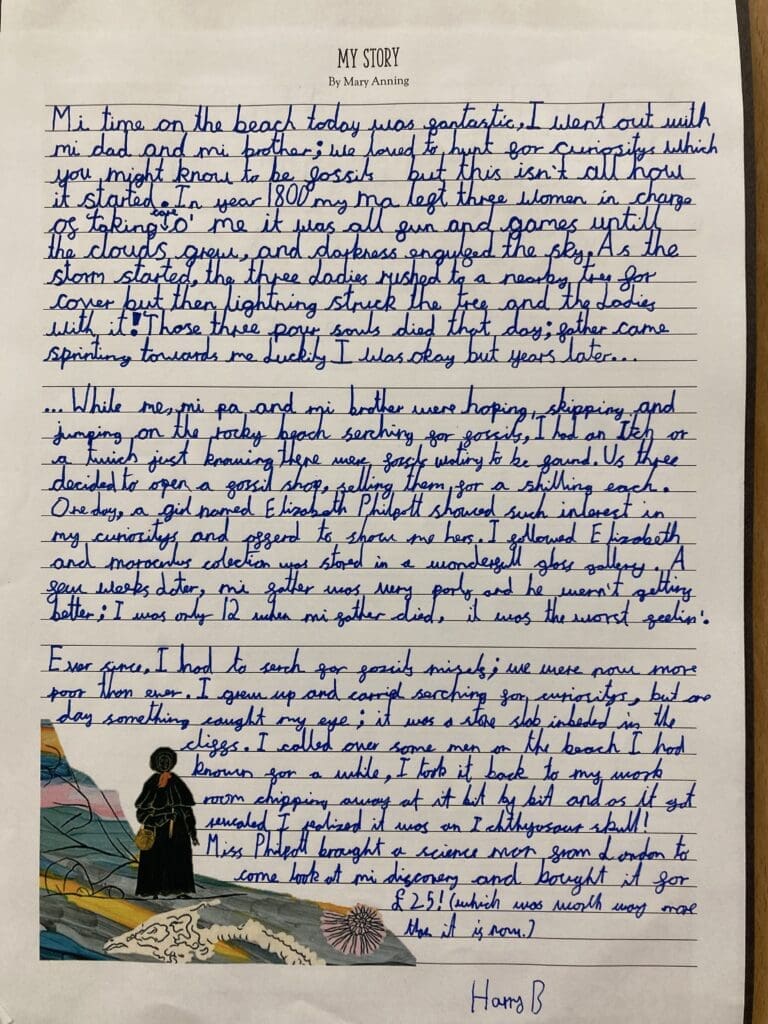 MY STORY
By Mary Anning
Mi time on the beach today was fantastic, I went out with
mi dad and mi brother; we loved to hunt for curiositys which
you might know to be fossils but this isn't all how
it started. In year 1800 my ma left three women in charge
of taking care o' me it was all fun and games untill
the clouds grew, and darkness engulfed the sky. As the
storm started, the three ladies rushed to a nearby tree for
cover but then lightning struck the tree and the Ladies
with it! Those three pour souls died that day; father came
sprinting towards me luckily I was okay but years later...
... While me, mi pa and mi brother were hoping, skipping and
jumping on the rocky beach serching for fossils, I had an Itch or
a twich just knowing there were fossils wating to be found. Us three
decided to open a fossil shop, selling them for a shilling each.
One day, a girl named Elizabeth Philpott showed such interest in
my curiositys and offerd to show me hers. I followed Elizabeth
and moraculus colection was stored in a wonderfull glass gallery. A
few weeks later, mi father was very porly and he wern't getting
better; I was only 12 when mi father died, it was the worst feelin'.
Ever since, I had to serch for fossils miself; we were now more
poor than ever. I grew up and carrid serching for curiositys, but one
day something caught my eye; it was a stone slab inbeded in the
cliffs. I called over some men on the beach I had
known for a while, I took it back to my work
room chipping away at it bit by bit and as it got
revealed I realized it was an Ichthyosaur skull!
Miss Philpott brought a science man from London to
come look at mi discovery and bought it for
£25! (which was worth way more
than it is now.)
Harry B